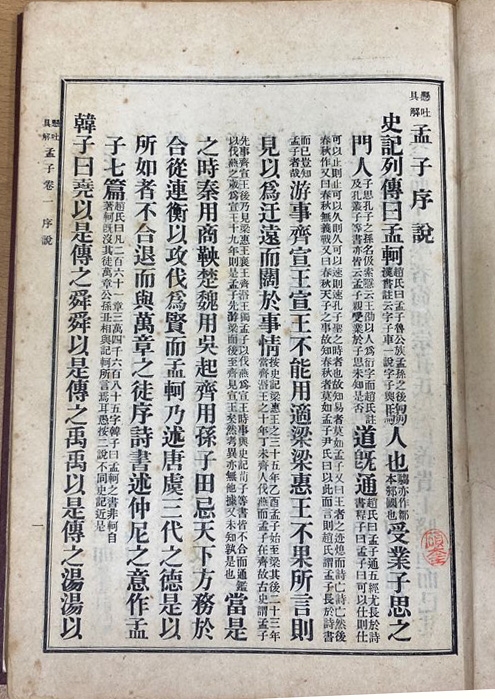 懸吐具解 孟子序說
史記列傳曰孟軻
趙氏曰孟子魯公族孟孫之後
漢書註云字子車一說字子輿
人也
騶亦作鄒
本邾國也
受業子思之
門人
子思孔子之孫名伋索隱云王劭以人爲衍字而趙氏註
及孔叢子等書亦皆云孟子親受業於子思未知是否
道旣通
趙氏曰孟子通五經尤長於詩
書程子曰孟子曰可以仕則仕
可以止則止可以久則久可以速則速孔子聖之時者也故知易者莫如孟子又曰王者之迹熄而詩亡詩亡然後
春秋作又曰春秋無義戰又曰春秋天子之事故知春秋者莫如孟子尹氏曰以此而言則趙氏謂孟子長於詩書
而已豈知
孟子者哉
游事齊宣王宣王不能用適梁梁惠王不果所言則
見以爲迂遠而闊於事情
按史記梁惠王之三十五年乙酉孟子始至梁其後二十三年
當齊湣王之十年丁未齊人伐燕而孟子在齊故古史謂孟子
先事齊宣王後乃見梁惠王襄王齊湣王獨孟子以伐燕爲宣王時事與史記荀子等書皆不合而通鑑
以伐燕之歲爲宣王十九年則是孟子先游梁而後至齊見宣王矣然考異亦無他據又未知孰是也
當是
之時秦用商鞅楚魏用吳起齊用孫子田忌天下方務於
合從連衡以攻伐爲賢而孟軻乃述唐虞三代之德是以
所如者不合退而與萬章之徒序詩書述仲尼之意作孟
子七篇
趙氏曰凡二百六十一章三萬四千六百八十五字韓子曰孟軻之書非軻自
著軻旣沒其徒萬章公孫丑相與記軻所言焉耳愚按二說不同史記近是
韓子曰堯以是傳之舜舜以是傳之禹禹以是傳之湯湯以
懸吐具解 孟子卷一 序說
一